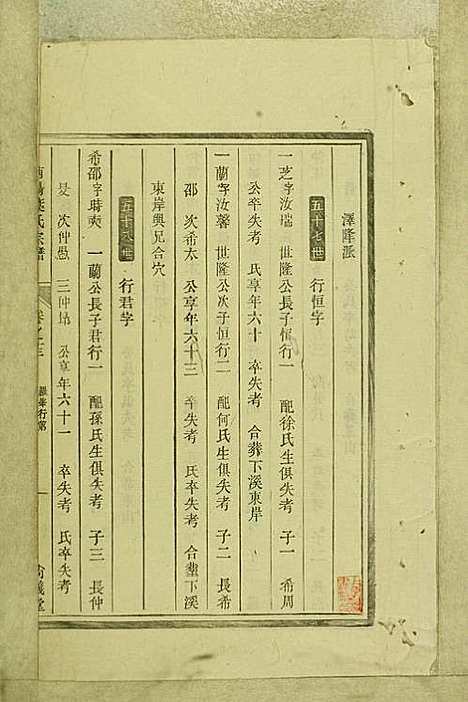 澤隆派
五十七世 行恒字
一芝字汝瑞 世隆公長子恒行一 配徐氏生俱失考 子一 希周
公卒失考 氏享年六十 卒失考 合葬下溪東岸
一蘭字汝馨 世隆公次子恒行二 配何氏生俱失考 子二 長希
邵 次希太 公享年六十三 卒失考 氏卒失考 合葬下溪
東岸與兄合穴
五十八世 行君字
希邵字時奭 一蘭公長子君行一 配孫氏生俱失考 子三 長仲
旻 次仲愚 三仲 公享年六十一 卒失考 氏卒失考
氏宗譜 卷之三 行第 尚義堂